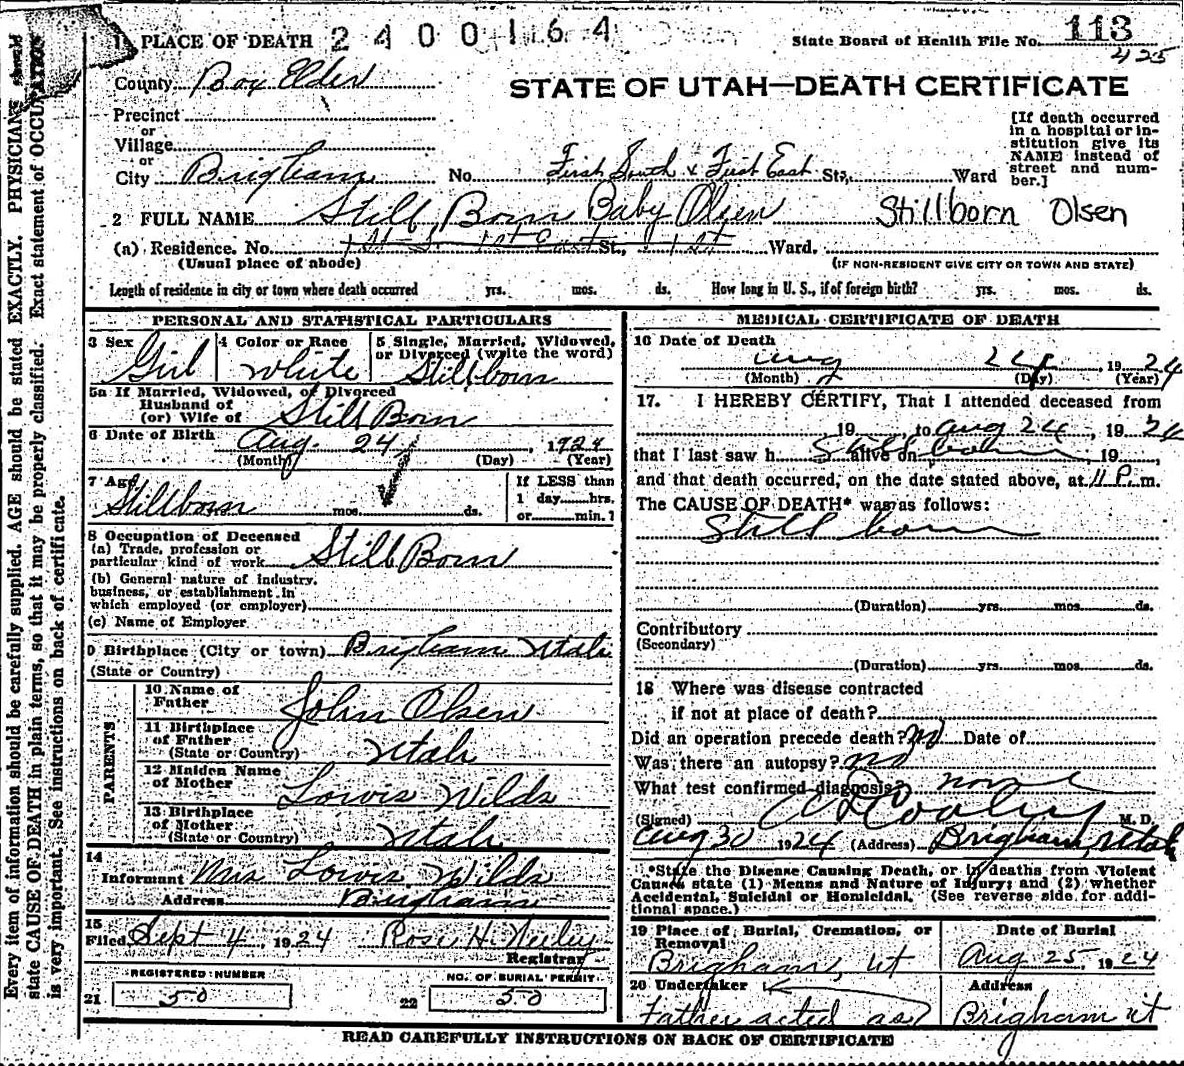 1 PLACE OF DEATH 2400164
State Board of Health File No. 113
425
County Box Elder
STATE OF UTAH—DEATH CERTIFICATE
Precinct
or
Village
or
City Brigham No. First South & First East St., Ward
[If death occurred
in a hospital or in-
stitution give its
NAME instead of
street and num-
ber.]
2 FULL NAME Still Born Baby Olsen Stillborn Olsen
(a) Residence. No. 1st S. 1st East St., 1st Ward.
(Usual place of abode) (IF NON-RESIDENT GIVE CITY OR TOWN AND STATE)
Length of residence in city or town where death occurred yrs. mos. ds. How long in U. S., if of foreign birth? yrs. mos. ds.
PERSONAL AND STATISTICAL PARTICULARS
3 Sex 4 Color or Race 5 Single, Married, Widowed,
or Divorced (write the word)
Girl White Stillborn
5a If Married, Widowed, or Divorced
Husband of
(or) Wife of Still Born
6 Date of Birth Aug. 24 1924
(Month) (Day) (Year)
7 Age Stillborn mos. ds.
If LESS than
1 day hrs.
or min.?
8 Occupation of Deceased
(a) Trade, profession or
particular kind of work Still Born
(b) General nature of industry,
business, or establishment in
which employed (or employer)
(c) Name of Employer
9 Birthplace (City or town) Brigham Utah
(State or Country)
PARENTS
10 Name of
Father John Olsen
11 Birthplace
of Father
(State or Country) Utah
12 Maiden Name
of Mother Lowis Wilds
13 Birthplace
of Mother
(State or Country) Utah
14
Informant Mrs Lowis Wilds
Address Brigham
15
Filed Sept 4, 1924 Rose H. Neeley
Registrar
REGISTERED NUMBER NO. OF BURIAL PERMIT
21 50 22 50
MEDICAL CERTIFICATE OF DEATH
16 Date of Death
Aug 24, 1924
(Month) (Day) (Year)
17. I HEREBY CERTIFY, That I attended deceased from
19 , to Aug 24, 1924
that I last saw h alive on Still born, 19 ,
and that death occurred, on the date stated above, at 11 P. m.
The CAUSE OF DEATH* was as follows:
Still born
(Duration) yrs. mos. ds.
Contributory
(Secondary)
(Duration) yrs. mos. ds.
18 Where was disease contracted
if not at place of death?
Did an operation precede death? no Date of
Was there an autopsy? no
What test confirmed diagnosis? none
(Signed) A D Cooley M. D.
Aug 30 1924 (Address) Brigham, Utah
*State the Disease Causing Death, or in deaths from Violent
Causes state (1) Means and Nature of Injury; and (2) whether
Accidental, Suicidal or Homicidal. (See reverse side for addi-
tional space.)
19 Place of Burial, Cremation, or
Removal
Brigham, Ut
Date of Burial
Aug 25, 1924
20 Undertaker
Father acted as
Address
Brigham Ut
READ CAREFULLY INSTRUCTIONS ON BACK OF CERTIFICATE
Every item of information should be carefully supplied. AGE should be stated EXACTLY. PHYSICIANS should
state CAUSE OF DEATH in plain terms, so that it may be properly classified. Exact statement of OCCUPATION
is very important. See instructions on back of certificate.